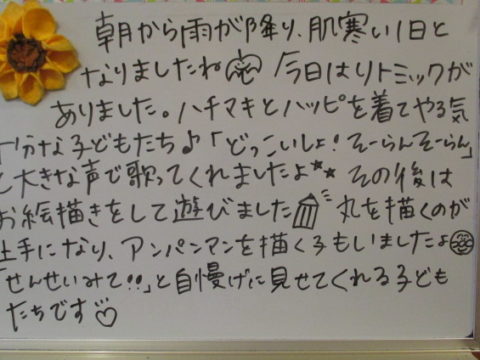 朝から雨が降り、肌寒い1日と
なりましたね 今日はリトミックが
ありました。ハチマキとハッピを着てやる気
十分な子どもたち♪「どっこいしょ！そーらんそーらん」
と大きな声で歌ってくれましたよ★★ その後は
お絵描きをして遊びました 丸を描くのが
上手になり、アンパンマンを描く子もいましたよ
「せんせいみて!!」と自慢げに見せてくれる子ども
たちです♡